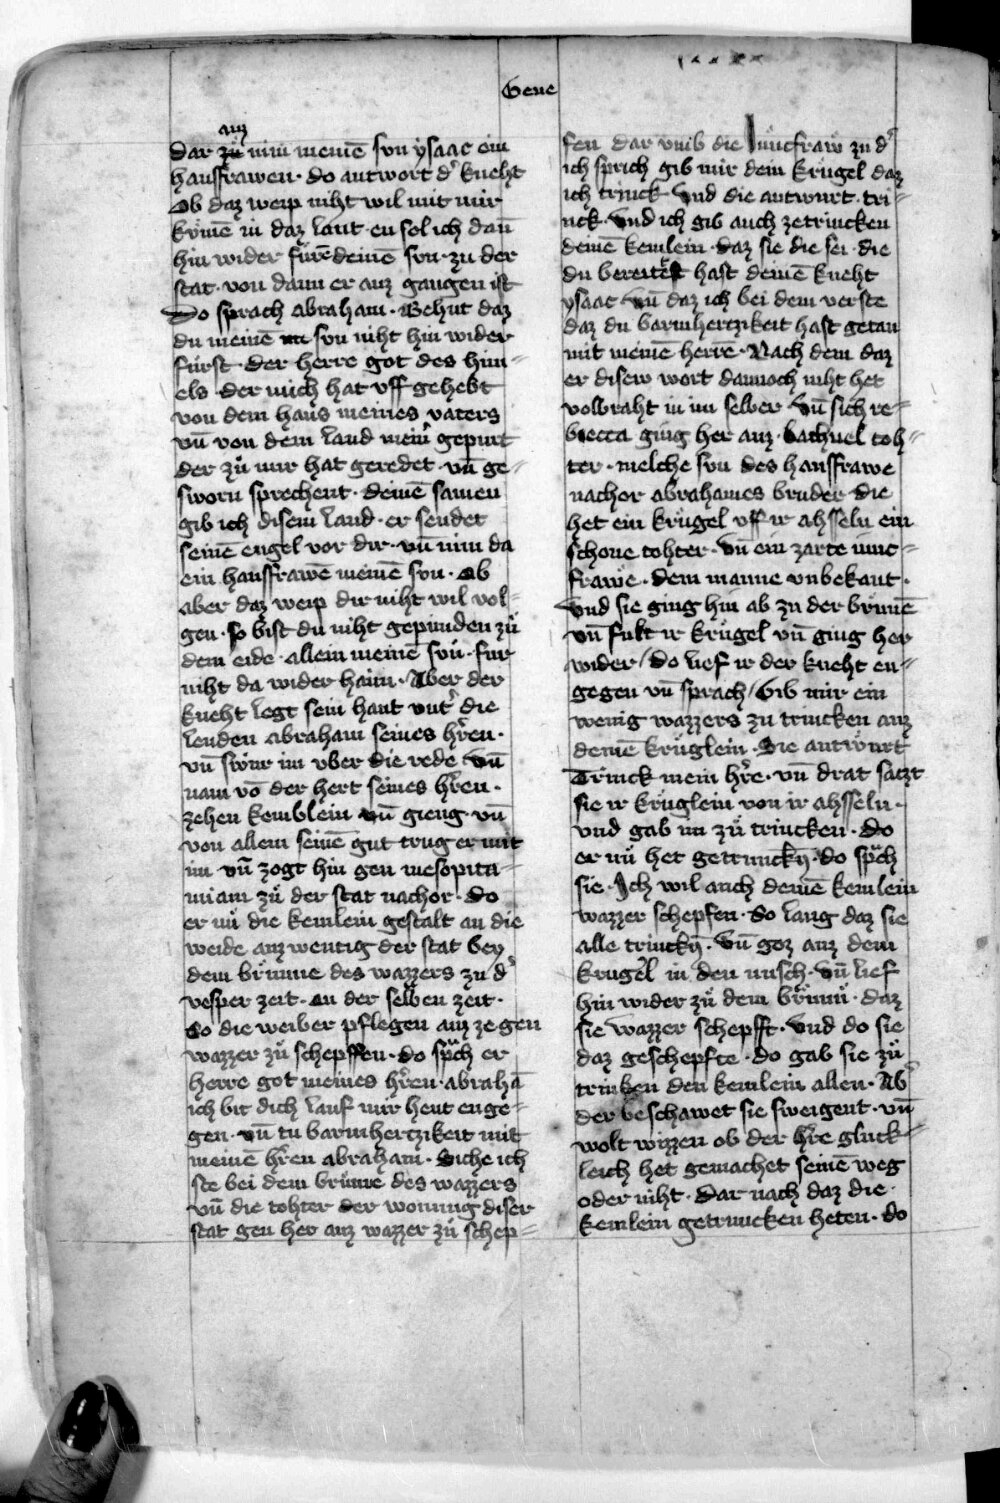 Gene
auz
dar zů nim meinē sun ysaac ein
hausfrawen · do antwort d' kneht
Ob daz weip niht wil mit mir
kůmē in daz lant · en sol ich dan̄
hin wider fůrē deinē sun · zu der
stat · von dann er auz gangen ist
Do sprach abraham · Behut daz
du meinē sun niht hin wider
fůrst · der herre got des him=
els der mich hat vff gehebt
von dem haus meines vaters
vn̄ von dem land mein' gepurt
der zů mir hat geredet · vn̄ ge=
sworn sprechent · deinē samen
gib ich disem land · er sendet
seinē engel vor dir · vn̄ nim da
ein hausfrawē meinē sun · Ob
aber daz weip dir niht wil vol=
gen · so bist du niht gepunden zů
dem eide · allein meinē sun · fur
niht da wider haim · Aber der
kneht legt sein hant vnt' die
lenden abraham seines h'ren ·
vn̄ swur im vber die rede vn̄
nam vō der hert seines h'ren ·
zehen kemblein vn̄ gieng · vn̄
von allem seinē gut trug er mit
im vn̄ zogt hin gen mesopita=
miam zů der stat nachor · do
er nů die kemlein gestalt an die
weide auzwentig der stat bey
dem brůnne des wazzers zu d'
vesper zeit · an der selben zeit ·
So die weiber pflegen auz ze gen
wazzer zů schepffen · do sp'ch er
herre got meines h'ren · abrahā
ich bit dich lauf mir heut enge=
gen · vn̄ tu barmhertzikeit mit
meinē h'ren abraham · Siche ich
ste bei dem brůnne des wazzers
vn̄ die tohter der wonung diser
stat gen her auz wazzer zů schep=
fen dar vmb die Juncfraw zu d'
ich sprich gib mir dein krůgel daz
ich trinck Vnd die antwurt · tri=
nck · Vnd ich gib auch ze trincken
deinē kemlein · daz sie die sei · die
du bereitest hast deinē kneht
ysaac vn̄ daz ich bei dem verste
daz du barmhertzikeit hast getan
mit meinē herrē · Nach dem daz
er disew wort dannoch niht het
volbraht in im selber Vn̄ sich re=
becca ging her auz · bathuel toh=
ter · melche sun des hausfrawe
nachor abrahames bruder die
het ein krůgel vff ir ahsseln ein
schone tohter · Vn̄ ein zarte iunc=
frawe · dem manne vnbekant ·
Vnd sie ging hin ab zu der brůnnē
vn̄ fult ir krůgel vn̄ ging her
wider / do lief ir der kneht en=
gegen vn̄ sprach / Gib mir ein
wenig wazzers zu trincken auz
deinē krůglein · Sie antwurt
Trinck mein h're · vn̄ drat saczt
sie ir krůglein von ir ahsseln ·
vnd gab im zů trincken · do
er nů het getrunckn̄ · do sp'ch
sie · Ich wil auch deinē kemlein
wazzer schepfen · So lang daz sie
alle trinckn̄ · Vn̄ goz auz dem
krugel in den nusch · Vn̄ lief
hin wider zů dem brůnn · daz
sie wazzer schepfft · Vnd do sie
daz geschepfte · do gab sie zů
trinken den kemlein allen · Ab'
der beschawet sie sweigent · vn̄
wolt wizzen ob der h're gluck=
leich het gemachet seinē weg
oder niht · Dar nach daz die
kemlein getruncken heten · do